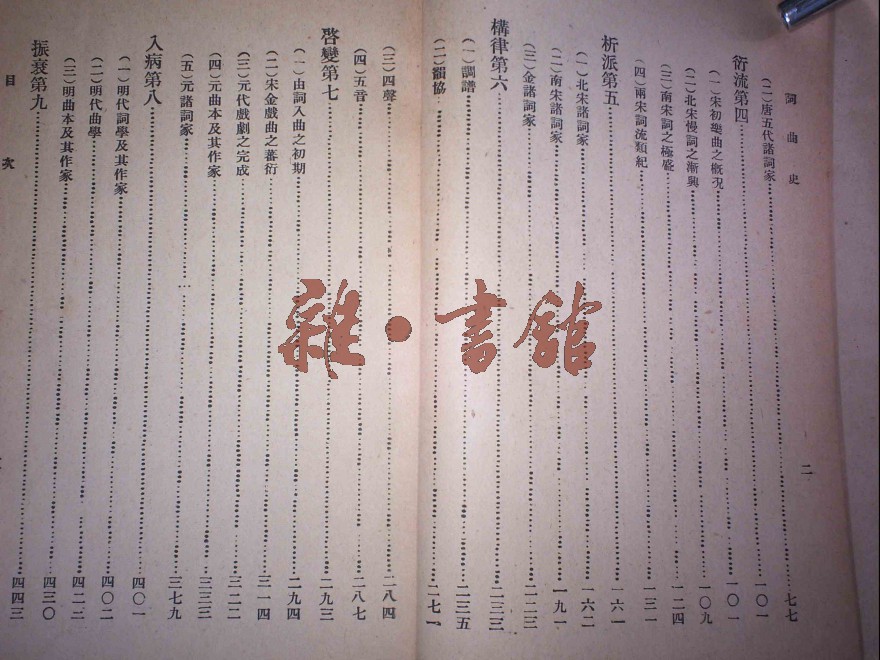 詞曲史 二
(二)唐五代諸詞家……七七
衍流第四……一〇一
(一)宋初樂曲之概況……一〇一
(二)北宋慢詞之漸興……一〇九
(三)南宋詞之極盛……一二四
(四)兩宋詞流類紀……一三一
析派第五……一六一
(一)北宋諸詞家……一六二
(二)南宋諸詞家……一九一
(三)金諸詞家……二二三
構律第六……二三三
(一)調譜……二三五
(二)韻協……二七一
(三)四聲……二八四
(四)五音……二八七
啓變第七……二九三
(一)由詞入曲之初期……二九四
(二)宋金戲曲之蕃衍……三一四
(三)元代戲劇之完成……三二二
(四)元曲本及其作家……三三三
(五)元諸詞家……三七九
入病第八……四〇一
(一)明代詞學及其作家……四〇二
(二)明代曲學……四二二
(三)明曲本及其作家……四三〇
振衰第九……四四三
目次
雜·書館